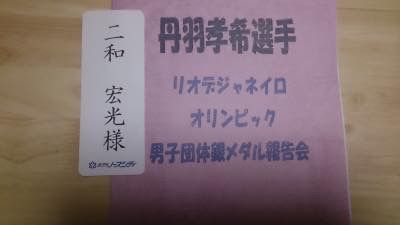 丹羽孝希選手
リオデジャネイロ
オリンピック
男子団体銀メダル報告会
二和 宏光様
ホテルノースシティ